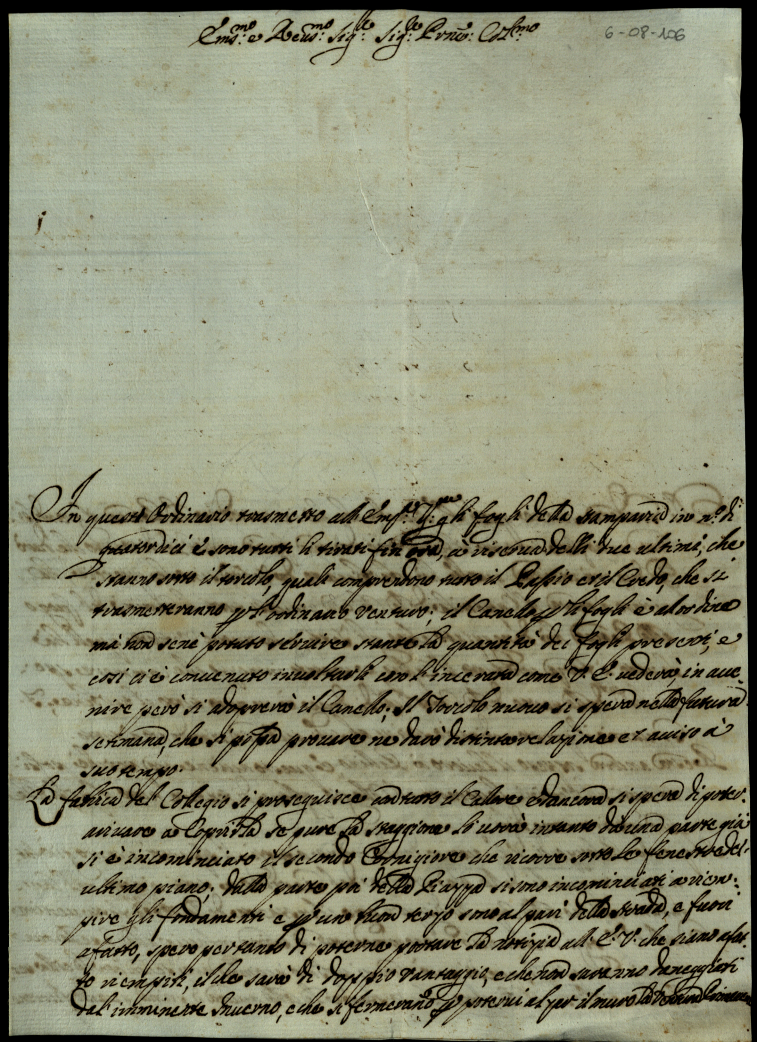 Em.mo e Reu.mo Sig.re Sig.re Prne. Col.mo
6-08-106
In questo Ordinario trasmetto all Em.za V. gli fogli della stamparia in n.o di
quatordici è sono tutti li tirati fin ora, à riserva delli due ultimi, che
stanno sotto il torcolo, quali comprendono tutto il Passio et il Credo, che si
trasmetteranno p l'ordinario venturo; il Canello p li fogli è al ordine
mà non sene potuto servire stante la quantità dei fogli presenti, e
cosi ci è convenuto involtarli con l'incerata come V. E. vederà, in aue-
nire però si adoprerà il Canello; Il Torcolo nuovo si spera nella futura
settimana, che si possa provare ne darò distinta relazione et aviso à
suo tempo.
La fabrica del Collegio si proseguisce con tutto il Calore ed ancora si spera di poter
arivare a Coprirla se pure la staggione lo vorà intanto da una parte già
si è incominciato il secondo Cornigione che ricorre sotto le fenestre del-
ultimo piano. dalla parte poi della Piazza si sono incominciati a riem-
pire gli fondamenti e p un buon terzo sono al pari della strada, e fuori
afatto, spero per tanto di poterne portare la notizia all E. V. che siano afat-
to riempiti, il che sarà di doppio vantaggio, e che non saranno daneggiati
dal'imminente Inverno, e che si fermerano p potervi alzar il muro la ventura Primavera